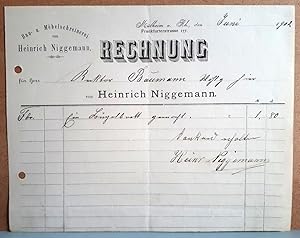 Bau- u. Möbelschreinerei
von
Heinrich Niggemann.
Mülheim a. Rh., den Juni 1902
Frankfurterstrasse 177.
RECHNUNG
für Herrn Rektor Baumann hier
von Heinrich Niggemann.
Febr. Ein gemacht 1,80
dankend erhalten
Heinr. Niggemann